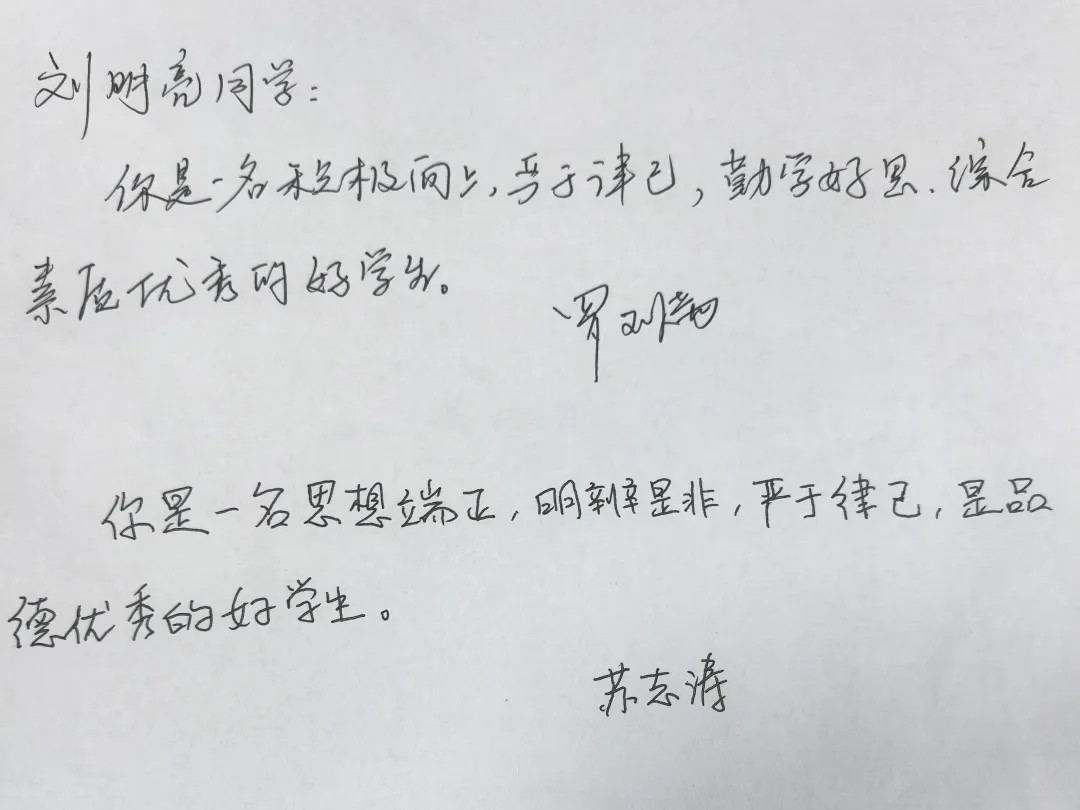 刘明亮同学：
你是一名积极向上，严于律己，勤学好思、综合
素质优秀的好学生。
罗
你是一名思想端正，明辨是非，严于律己，是品
德优秀的好学生。
苏志涛